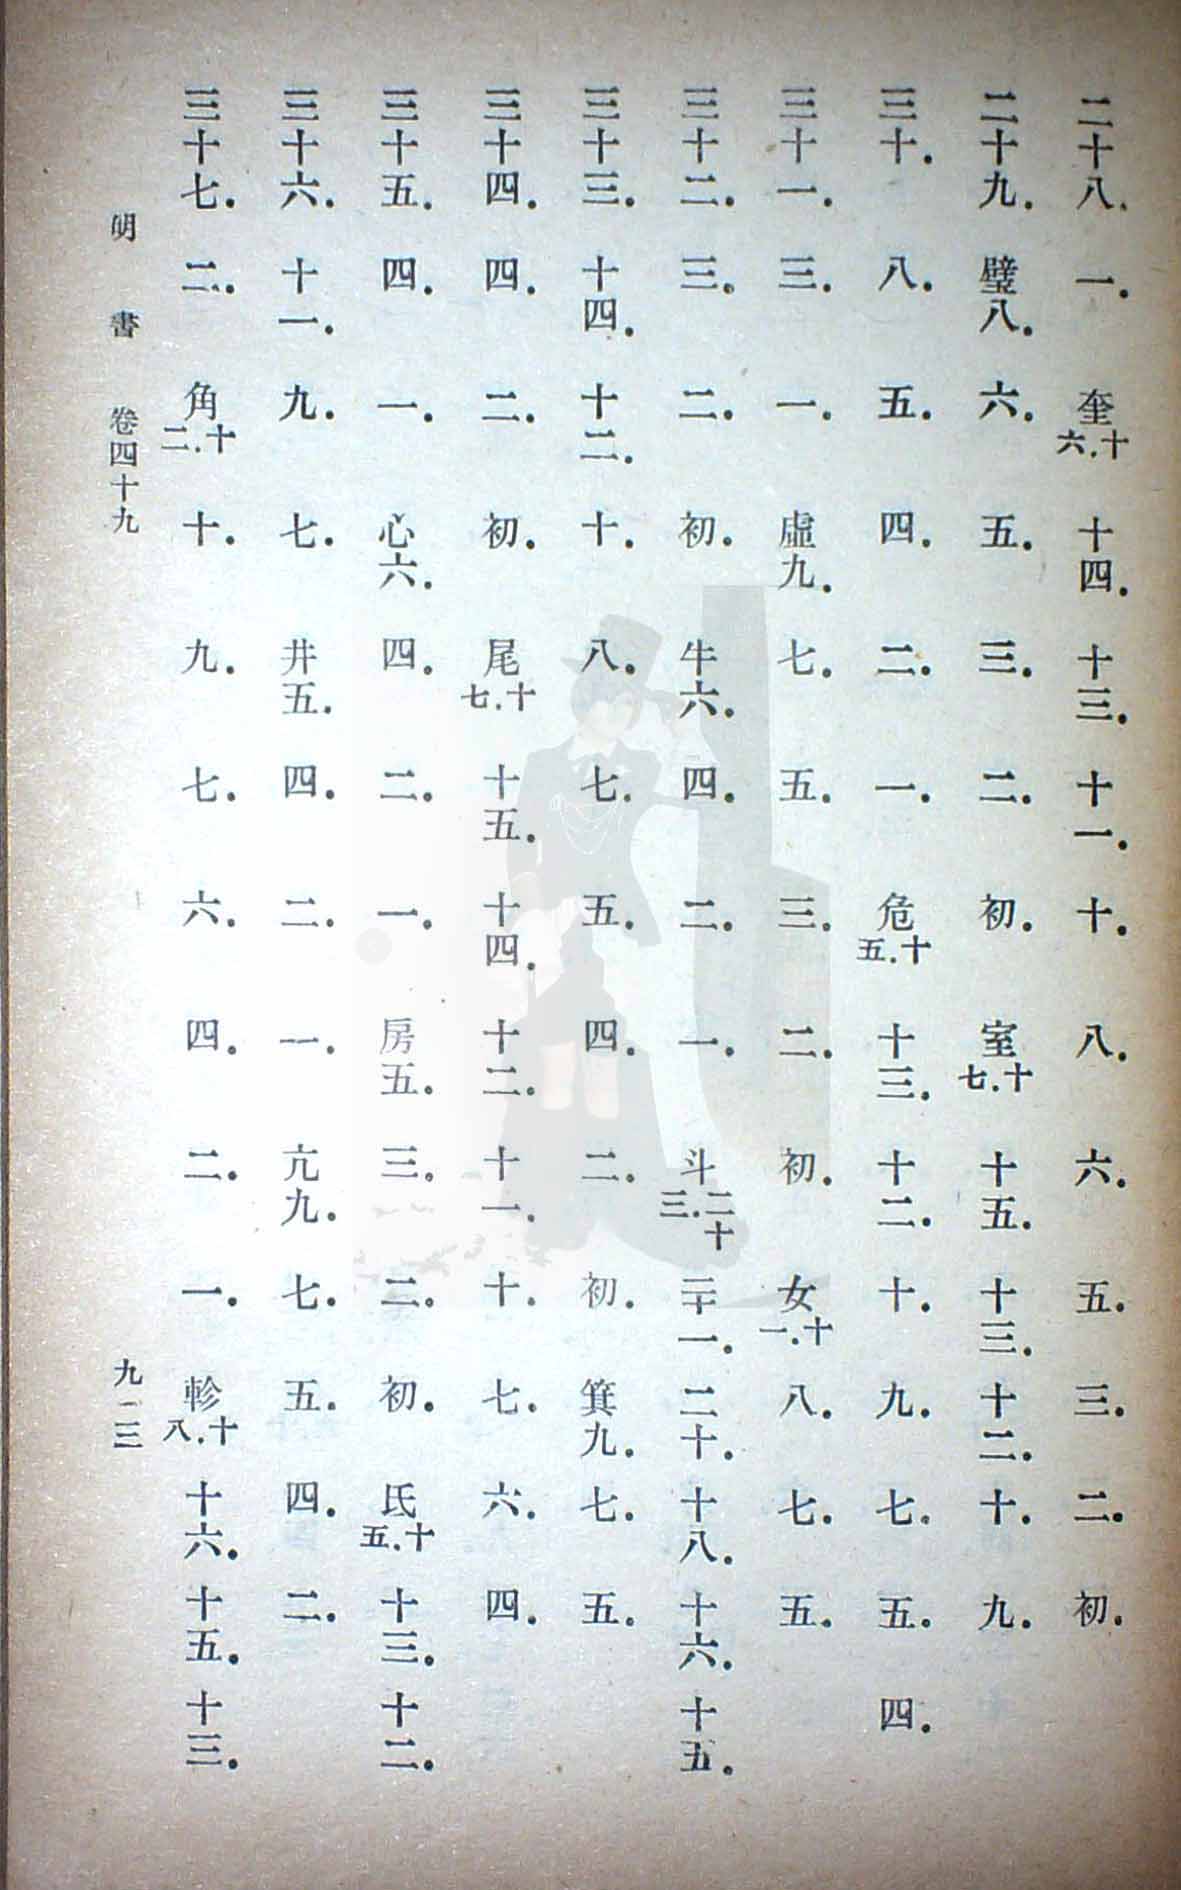 二十八．一．奎十六．十四．十三．十一．十．八．六．五．三．二．初．
二十九．璧八．六．五．三．二．初．室十七．十五．十三．十二．十．九．
三十．八．五．四．二．一．危十五．十三．十二．十．九．七．五．四．
三十一．三．一．虛九．七．五．三．二．初．女十一．八．七．五．
三十二．三．二．初．牛六．四．二．一．斗二十三．二十一．二十．十八．十六．十五．
三十三．十四．十二．十．八．七．五．四．二．初．箕九．七．五．
三十四．四．二．初．尾十七．十五．十四．十二．十一．十．七．六．四．
三十五．四．一．心六．四．二．一．房五．三．二．初．氐十五．十三．十二．
三十六．十一．九．七．井五．四．二．一．亢九．七．五．四．二．
三十七．二．角十二．十．九．七．六．四．二．一．軫十八．十六．十五．十三．
明書 卷四十九 九 三